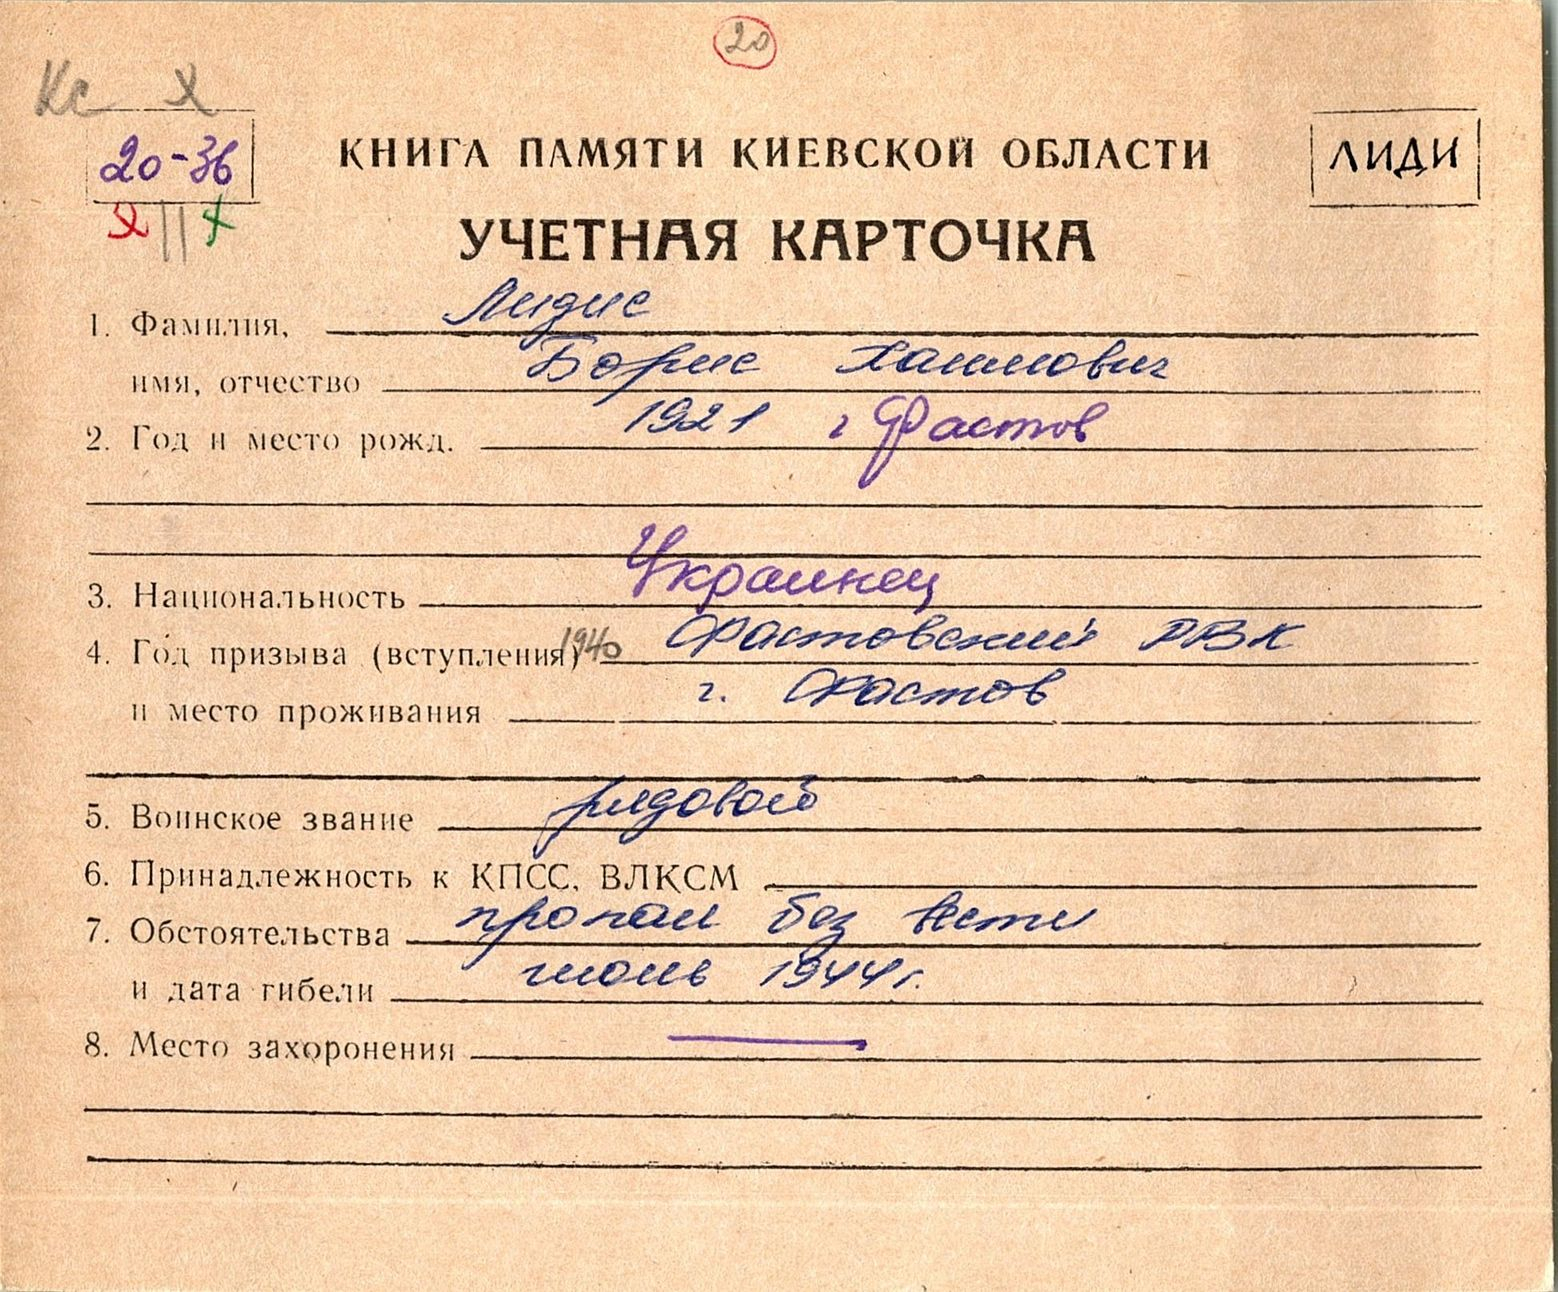 20
Кс Х
20-36
КНИГА ПАМЯТИ КИЕВСКОЙ ОБЛАСТИ
ЛИДИ
Х || Х
УЧЕТНАЯ КАРТОЧКА
1. Фамилия, Лидис
имя, отчество Борис Хаимович
2. Год и место рожд. 1921 г Фастов
3. Национальность Украинец
4. Год призыва (вступления) 1940 Фастовский РВК
и место проживания г. Фастов
5. Воинское звание рядовой
6. Принадлежность к КПСС, ВЛКСМ
7. Обстоятельства пропал без вести
и дата гибели июль 1944 г.
8. Место захоронения —